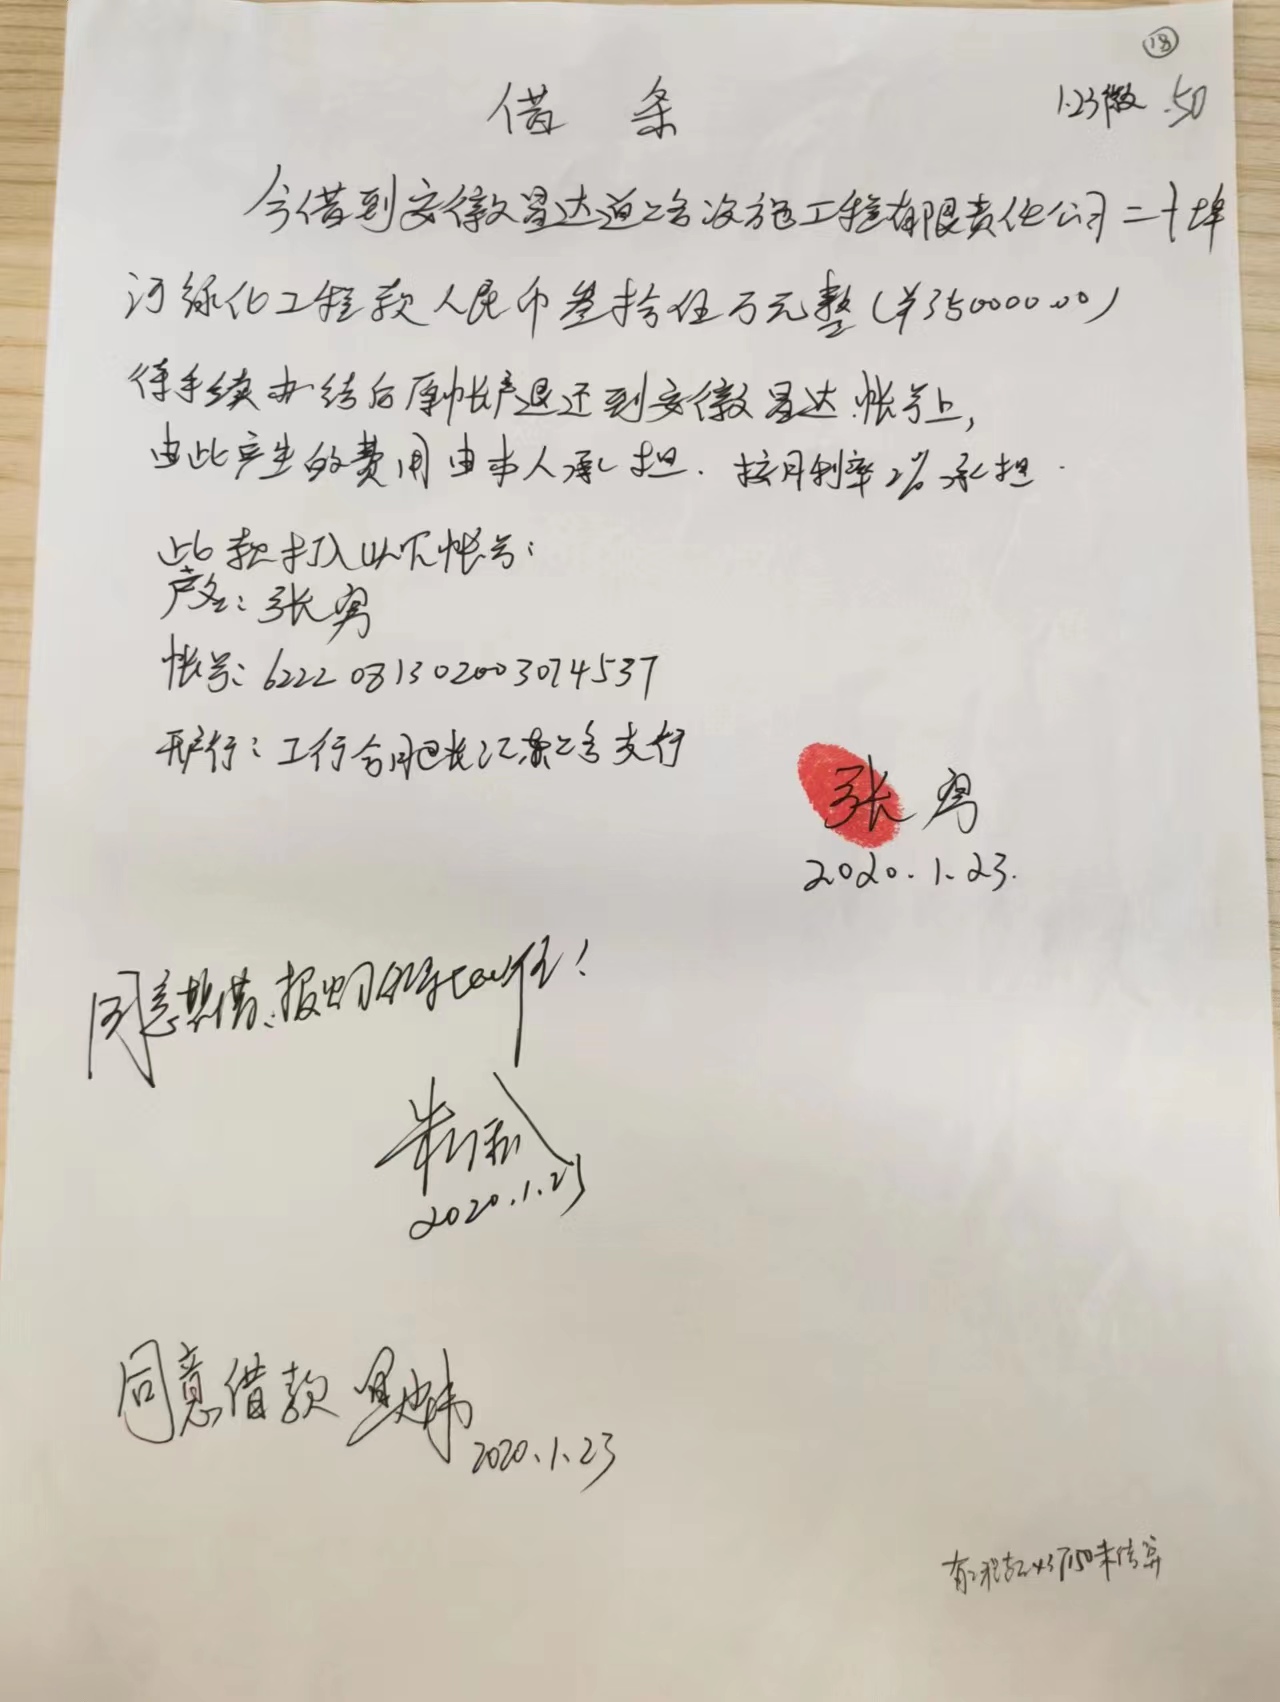 ⑱
1.23微 50
借条
今借到安徽昌达道路设施工程有限责任公司二十埠
河绿化工程款人民币叁拾伍万元整(¥350000.00)
待手续办结后原帐户退还到安徽昌达帐号上,
由此产生的费用由本人承担.按月利率2%承担.
此款打入以下帐号:
户名:张勇
帐号:6222081302003074537
开户行:工行合肥长江东路支行
张勇
2020.1.23.
同意借
2020.1.23
同意借款
2020.1.23